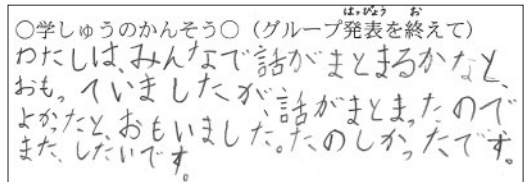 はっぴょう お
○学しゅうのかんそう○（グループ発表を終えて）
わたしは、みんなで話がまとまるかなと、
おもっていましたが、話がまとまったので
よかったと、おもいました。たのしかったです。
また、したいです。